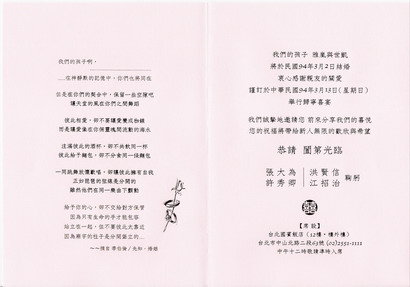 我們的孩子啊,
......在神靜默的記憶中,你們也將同在
但是在你們的契合中,保留一些空隙吧
讓天堂的風在你們之間舞蹈
彼此相愛,卻不要讓愛變成枷鎖
而是讓愛像在你倆靈魂間流動的海水
注滿彼此的酒杯,卻不共飲同一杯
彼此給予麵包,卻不分食同一條麵包
一同跳舞放懷歡唱,卻讓彼此擁有自我
正如琵琶的弦雖是分開的
雖然他們在同一奏曲下顫動
給予你的心,卻不交給對方保管
因為只有生命的手才能包容
站立在一起,但不要彼此太靠近
因為廟宇的柱子是分開聳立的....
~~摘自 紀伯倫/先知.婚姻
我們的孩子 雅嵐與世凱
將於民國94年3月2日結婚
衷心感謝親友的關愛
謹訂於中華民國94年3月13日(星期日)
舉行歸寧喜宴
我們誠摯地邀請您 前來分享我們的喜悅
您的祝福將帶給新人無限的歡欣與希望
恭請 闔第光臨
張大為 洪賢信
許秀卿 江招治 鞠躬
【席設】
台北國賓飯店(12樓,樓外樓)
台北市中山北路二段63號 (02)2551-1111
中午十二時敬請準時入席